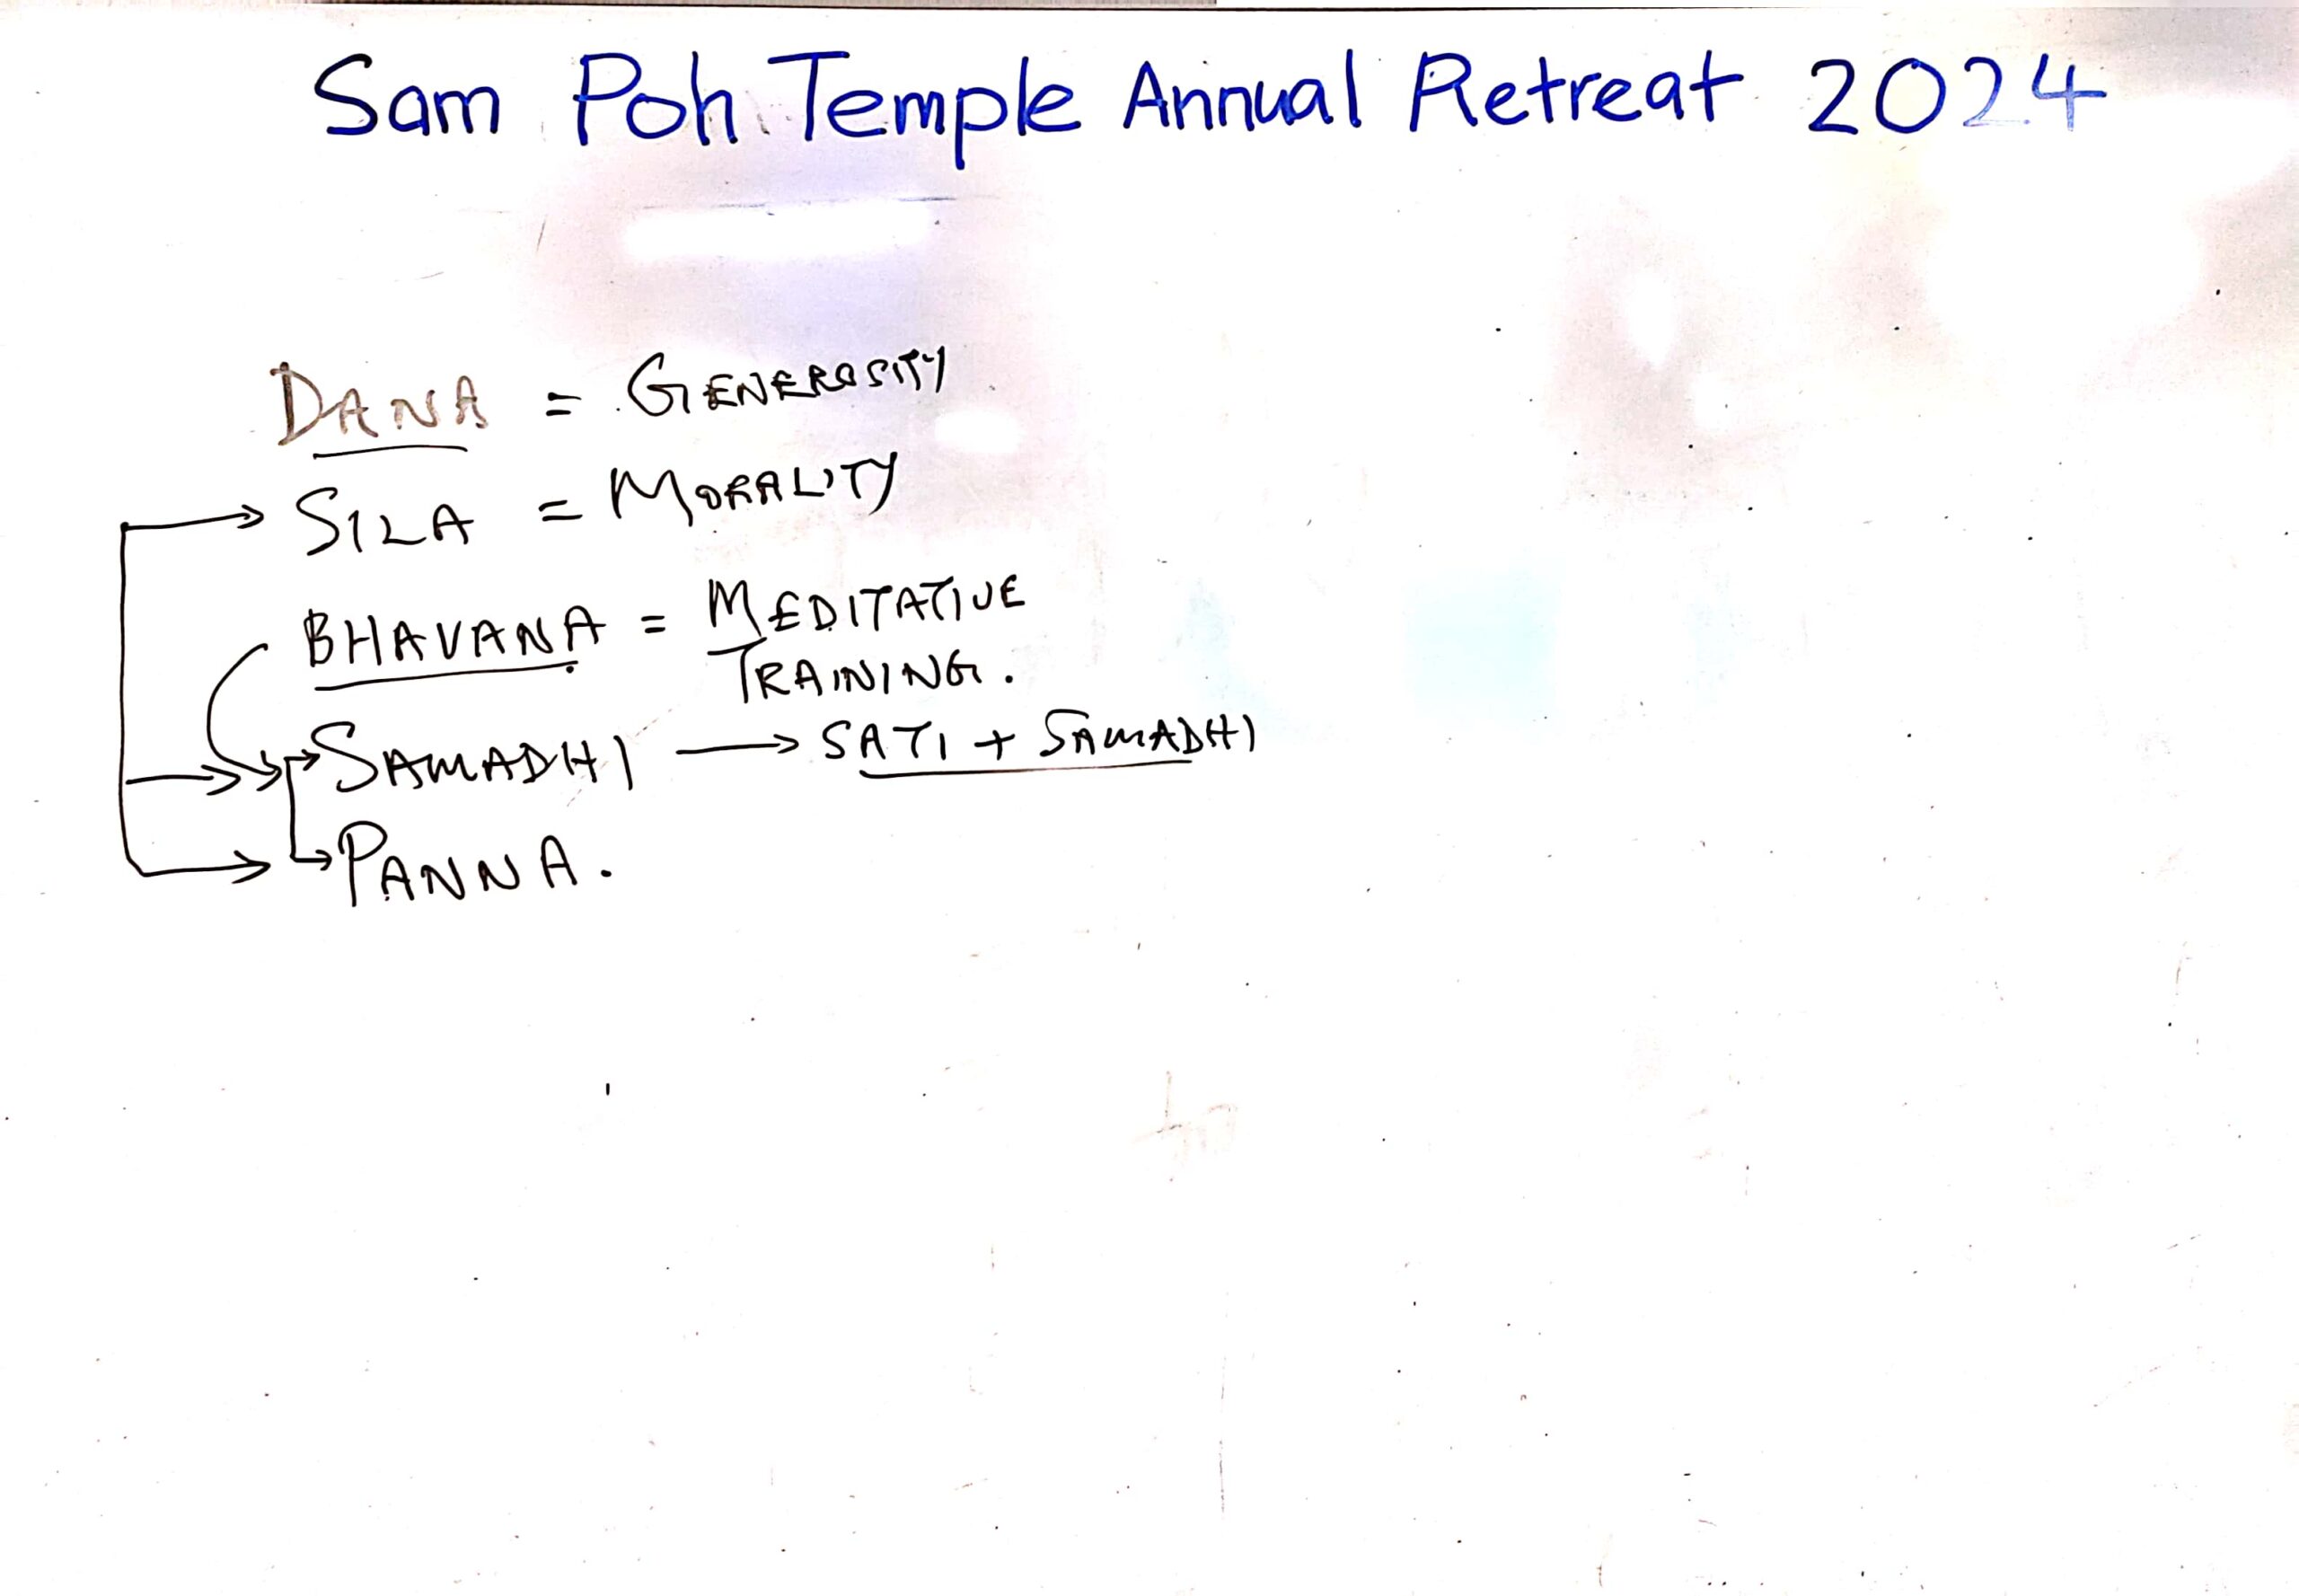 Sam Poh Temple Annual Retreat 2024
DANA = GENEROSITY
SILA = MORALITY
BHAVANA = MEDITATIVE
TRAINING.
SAMADHI → SATI + SAMADHI
PANNA.